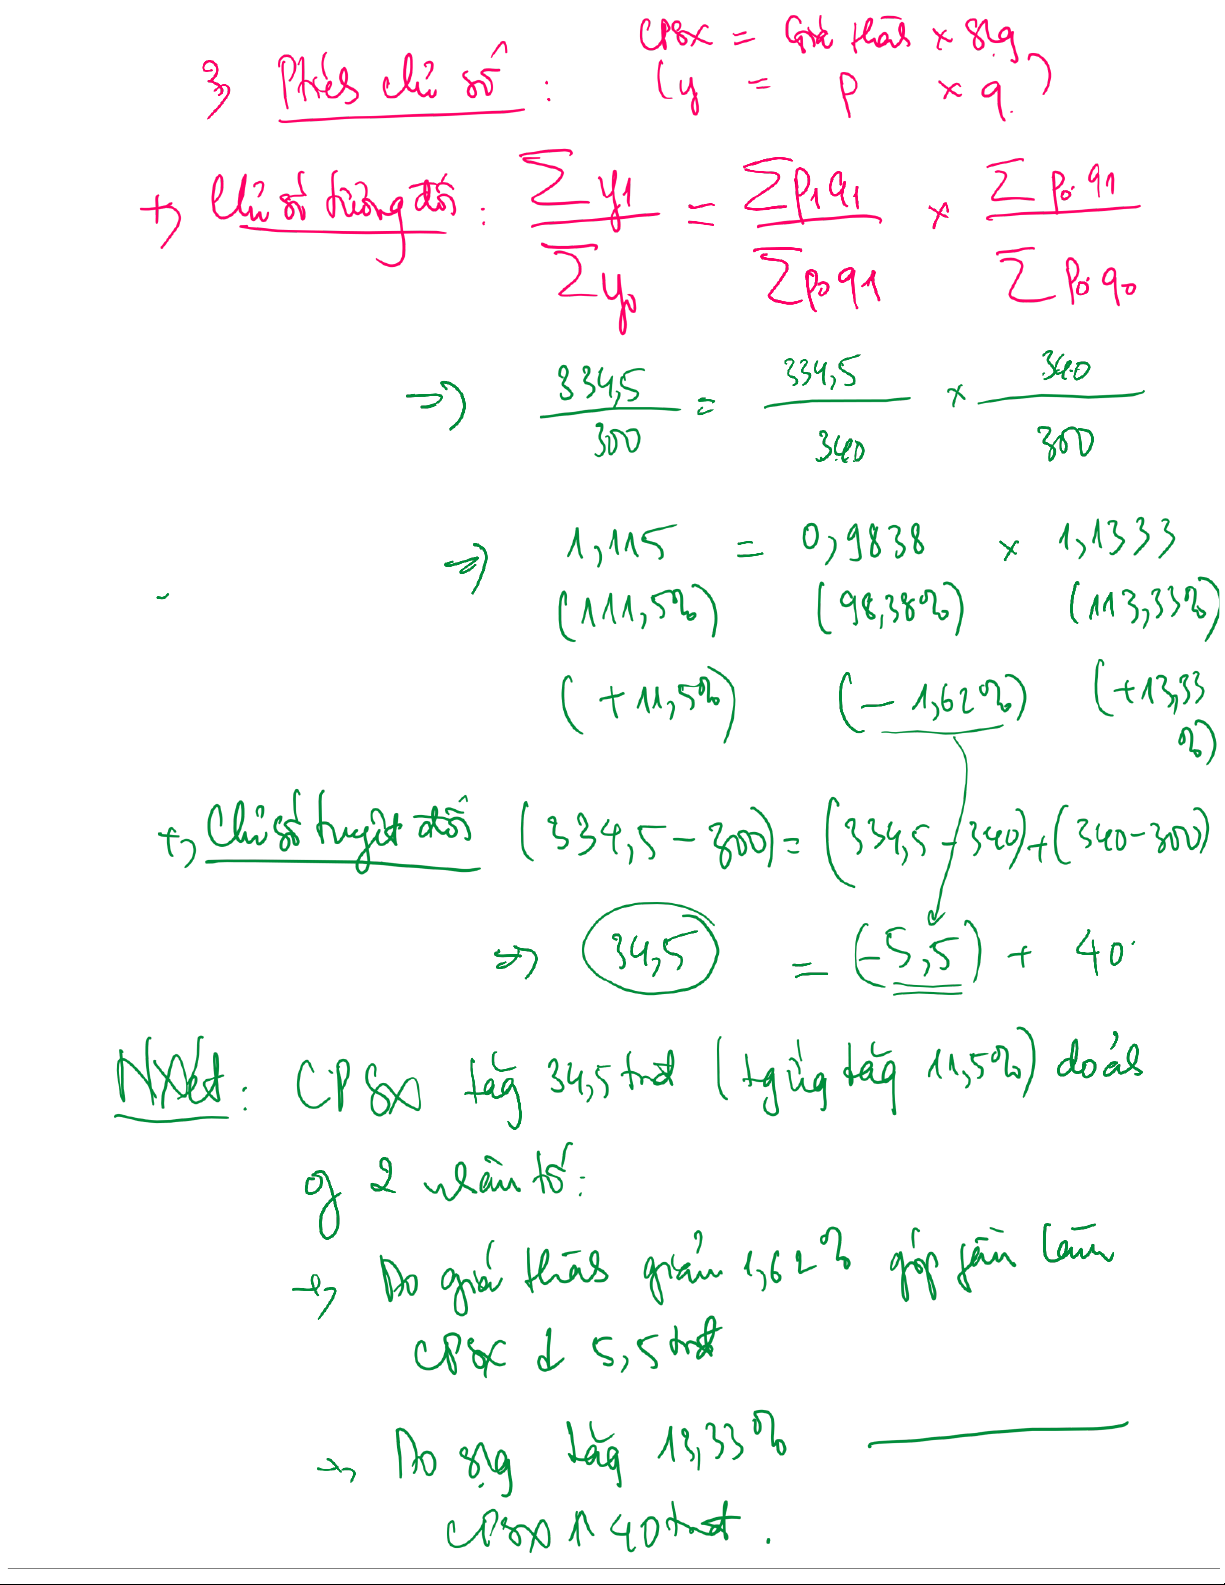 CPSX = Giá thàh x slg
3, Ph chỉ số : (y = p x q)
+, Chỉ số tương đối : ∑y1 / ∑y0 = ∑p1q1 / ∑p0q1 x ∑p0.q1 / ∑p0.q0
=> 334,5 / 300 = 334,5 / 340 x 340 / 300
=> 1,115 = 0,9838 x 1,1333
(111,5%) (98,38%) (113,33%)
(+11,5%) (-1,62%) (+13,33%)
+, Chỉ số tuyệt đối (334,5-300) = (334,5-340)+(340-300)
=> 34,5 = (-5,5) + 40
NXét: CPSX tăg 34,5 trđ (tg ứg tăg 11,5%) do áh
of 2 nhân tố:
-> Do giá thàh giảm 1,62% góp fần làm
CPSX ↓ 5,5 trđ
-> Do slg tăg 13,33%
CPSX ↑ 40 trđ.